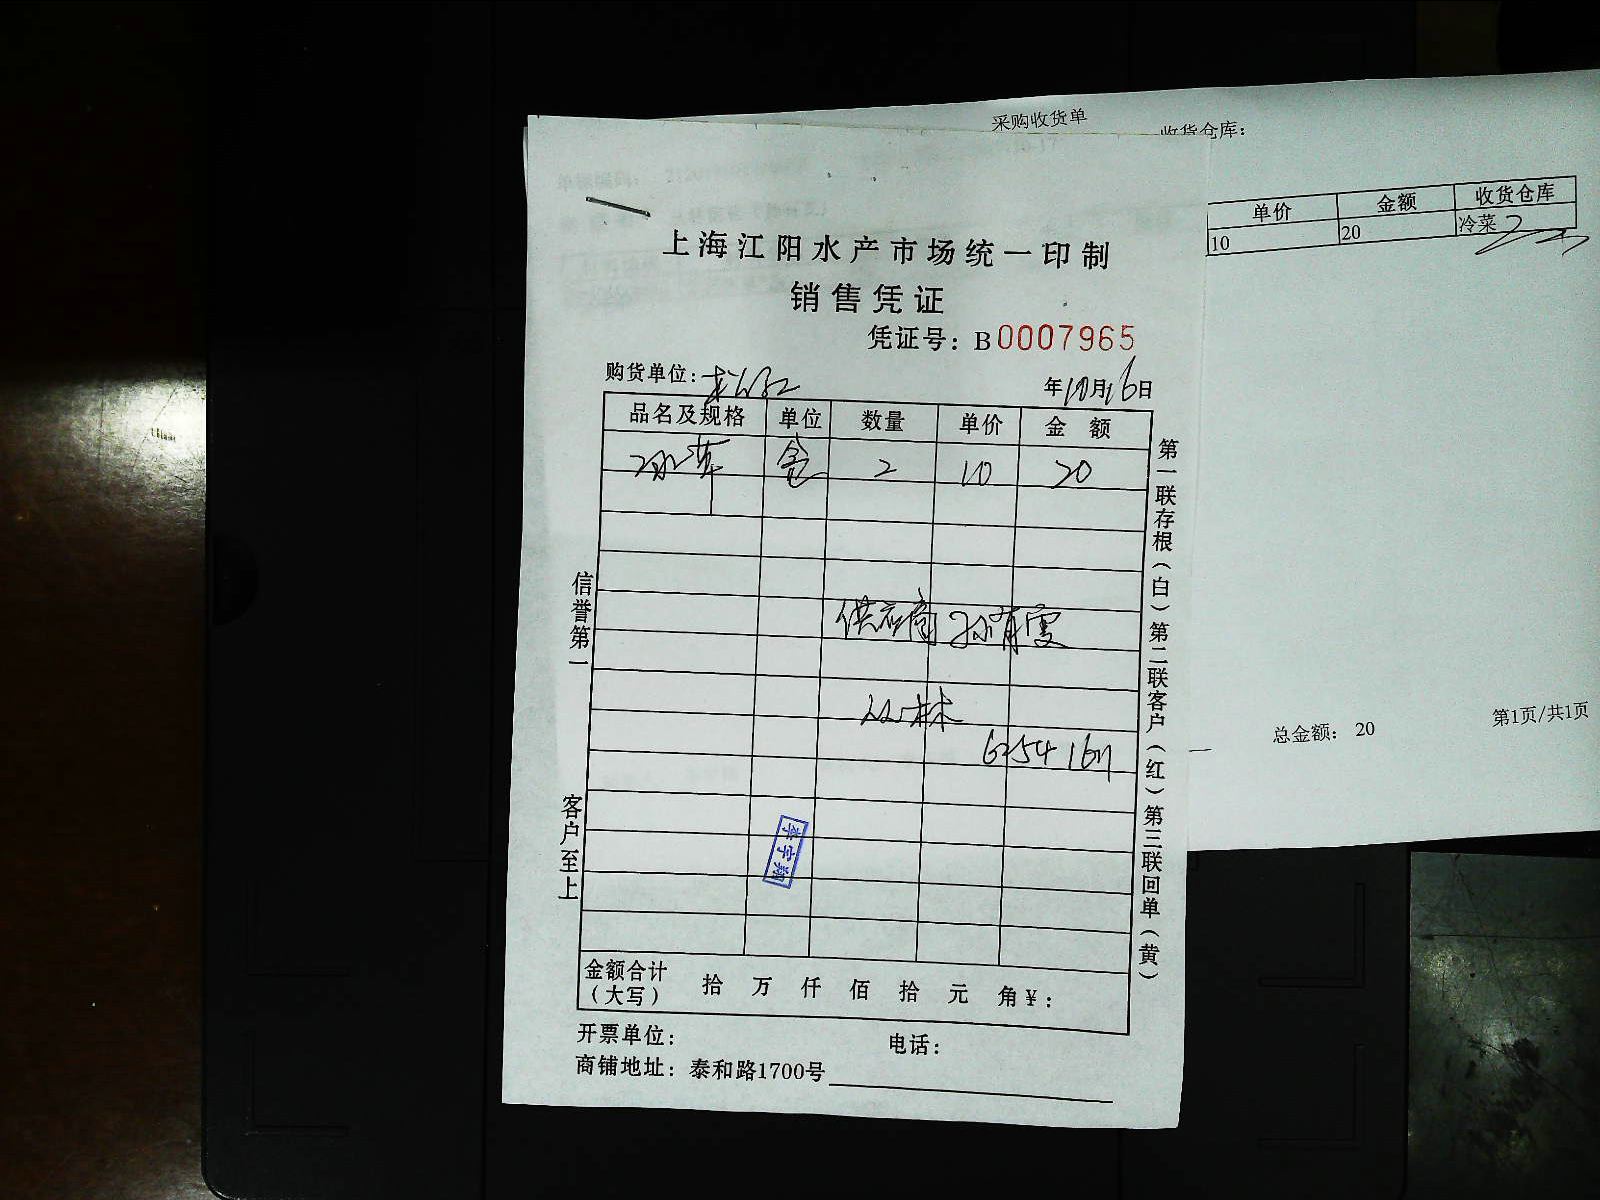 采购收货单
收货仓库：
单价 金额 收货仓库
10 20 冷菜
总金额： 20
第1页/共1页
上海江阳水产市场统一印制
销售凭证
凭证号：B0007965
购货单位：
年10月16日
品名及规格 单位 数量 单价 金 额
冰草 盒 2 10 20
供应商 孙育霞
丛林
信誉第一
客户至上
李宇翔
第一联存根（白）第二联客户（红）第三联回单（黄）
金额合计（大写） 拾 万 仟 佰 拾 元 角¥：
开票单位：
电话：
商铺地址：泰和路1700号